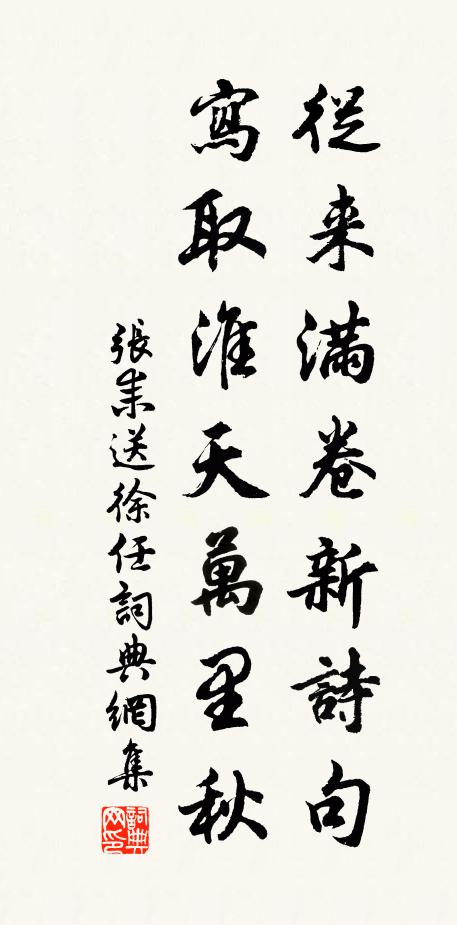 從来滿卷新詩句
寫取淮天萬里秋
張耒送徐任詞典網集
詞典网印